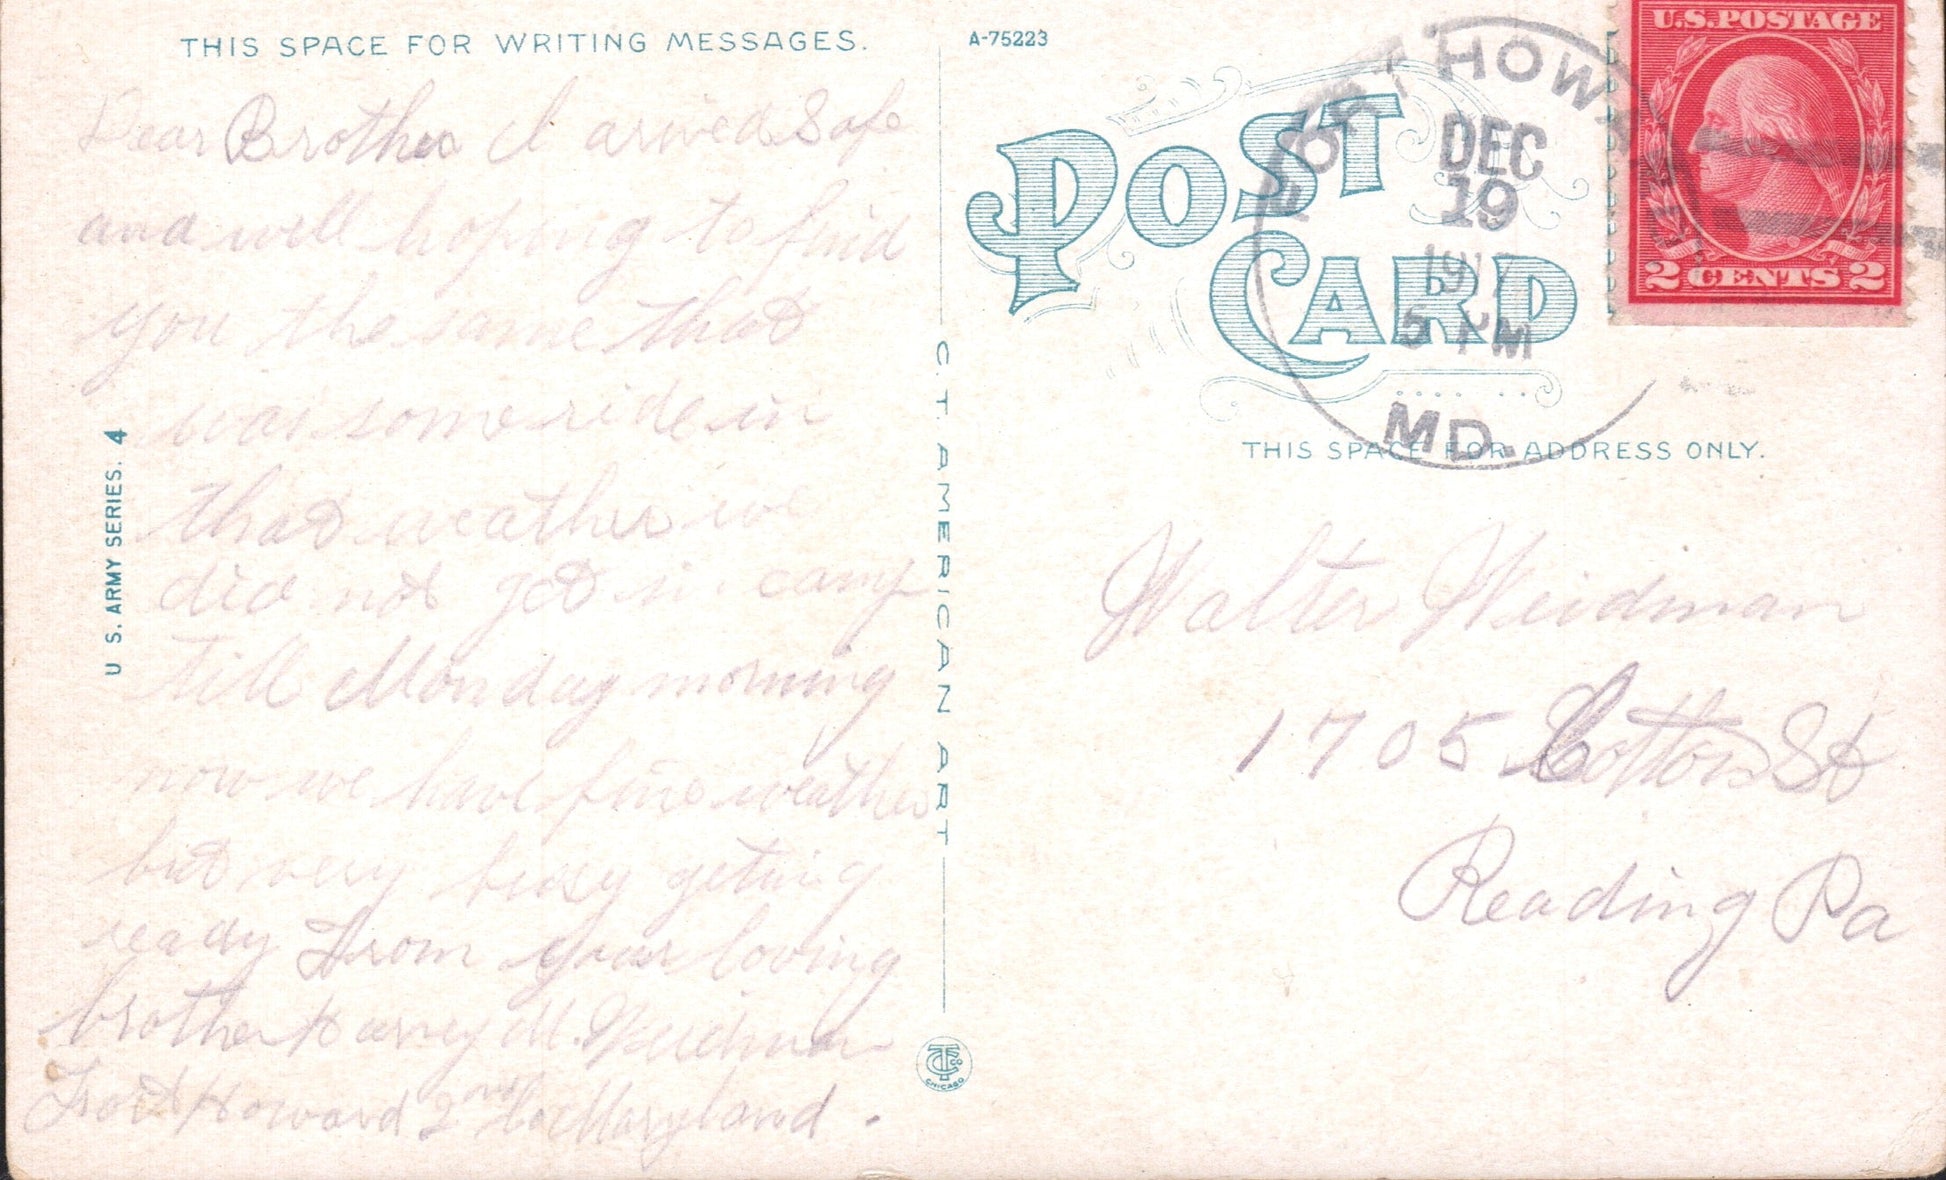 THIS SPACE FOR WRITING MESSAGES.
Dear Brother I arived Safe
and well hoping to find
you the same that
was some ride in
that weather we
did not got in camp
till Monday morning
now we have fine weather
but very busy geting
ready From your loving
brother Harvey M. Weidman
Fort Howard 2nd Co Maryland.
U.S. ARMY SERIES. 4
C.T. AMERICAN ART
CTCo
CHICAGO
A-75223
POST
CARD
FORT HOWARD
DEC
19
1917
5 PM
MD.
U.S. POSTAGE
2 CENTS 2
THIS SPACE FOR ADDRESS ONLY.
Walter Weidman
1705 Cotton St
Reading Pa